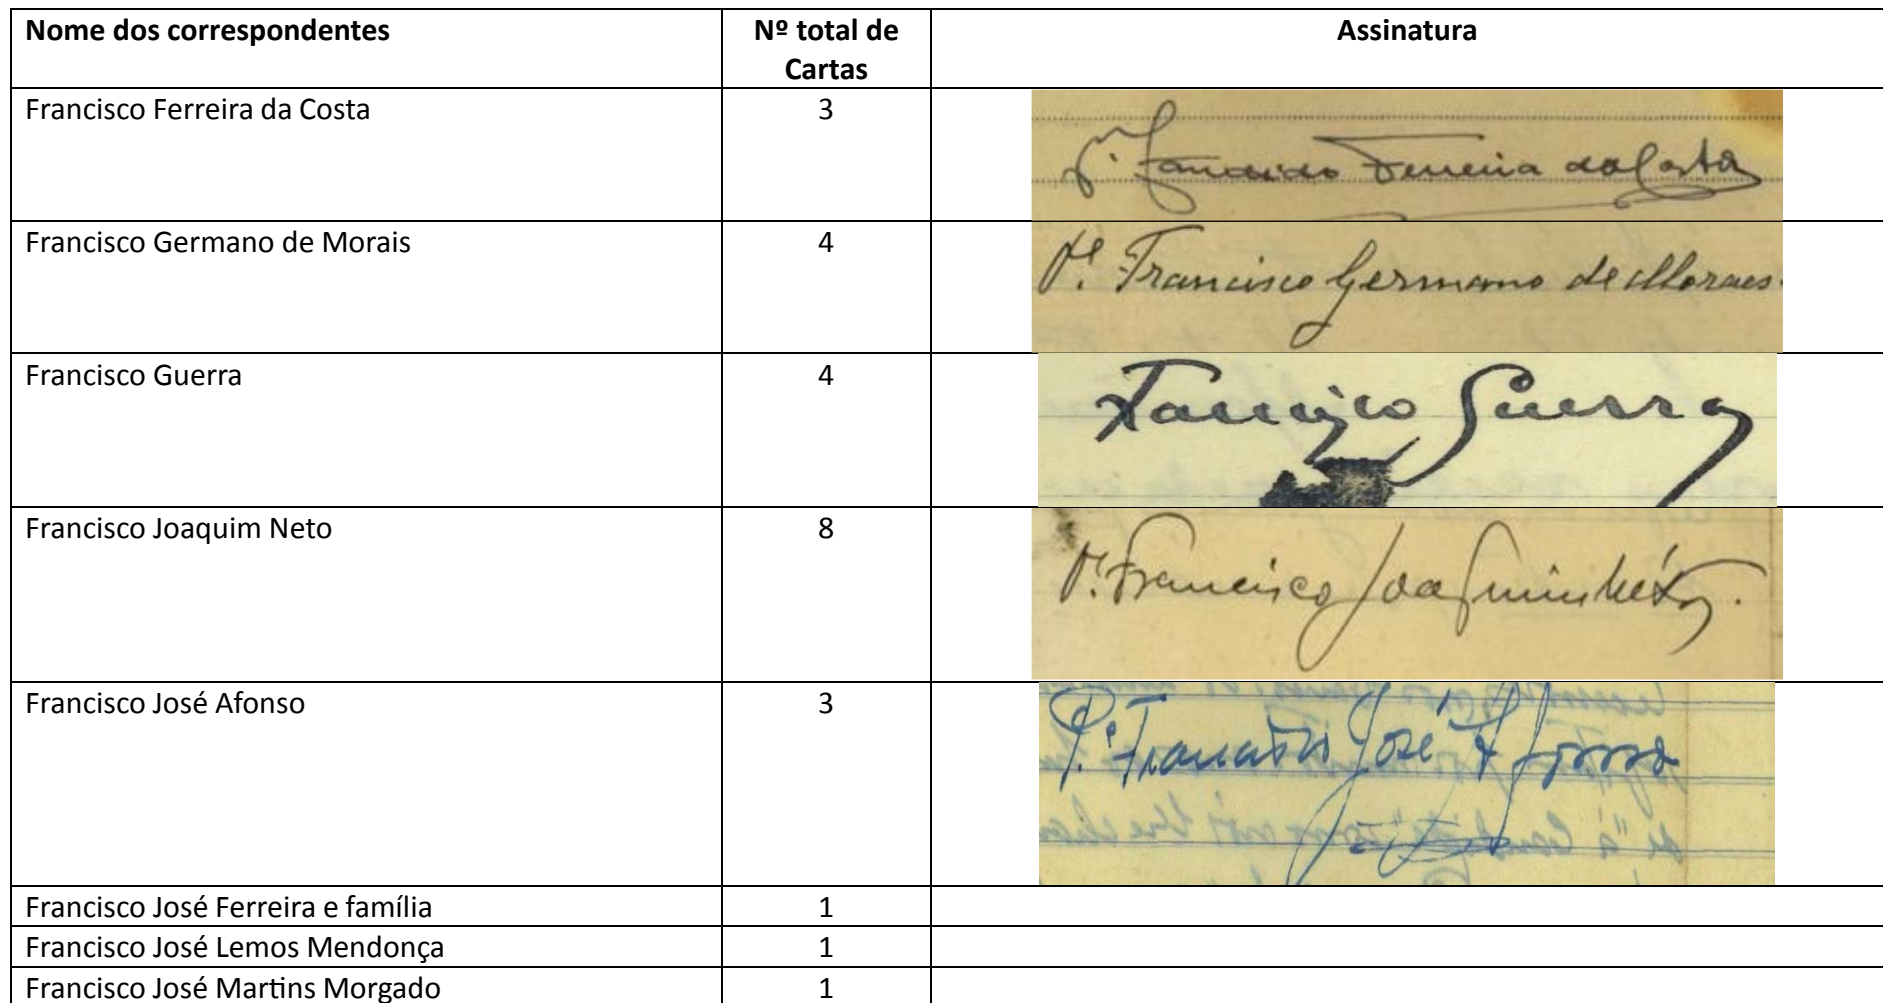 Nome dos correspondentes
Nº total de
Cartas
Assinatura
Francisco Ferreira da Costa
3
P.e Francisco Ferreira da Costa
Francisco Germano de Morais
4
P.e Francisco Germano de Moraes.
Francisco Guerra
4
Francisco Guerra
Francisco Joaquim Neto
8
P.e Francisco Joaquim Néto.
Francisco José Afonso
3
P.e Francisco José Afonso
Francisco José Ferreira e família
1
Francisco José Lemos Mendonça
1
Francisco José Martins Morgado
1